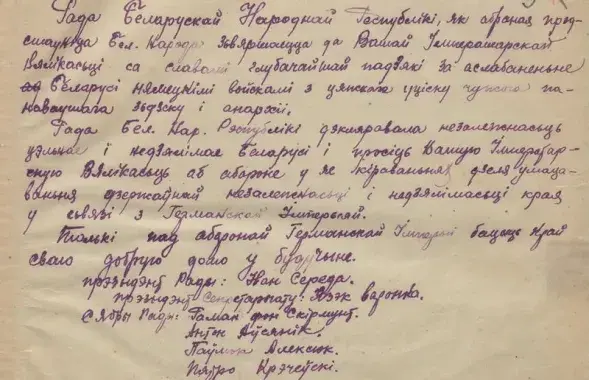 Рада Беларускай Народнай Рэспублікі, як абраная прад-
стаўніца Бел. Народу звяртаецца да Вашай Імператарскай
Вялікасьці са словамі глыбачайшай падзякі за асвабаненьне
Беларусі нямецкімі войскамі з цяжкага уціску чужога па-
наваўшага зьдзеку і анархіі.
Рада Бел. Нар. Рэспублікі дэкляравала незалежнасьць
цэльнае і недзялімае Беларусі і просіць Вашую Імператар-
скую Вялікасьць аб абароне у яе кіраваньнях дзеля умаца-
ваньня дзержаўнай незалежнасьці і недзялімасьці края
у сьвязі з Германскай Імперыяй.
Толькі пад абаронай Германскай Імперыі бачыць Край
сваю добрую долю у будучыне.
прэзыдэнт Рады: Іван Середа.
прэзыдэнт Сэкретарыату: Язэп Варонка.
Сябры Рады: Раман фон Скірмунт.
Антон Аўсянік.
Паўлюк Алексюк.
Пятро Крэчеўскі.